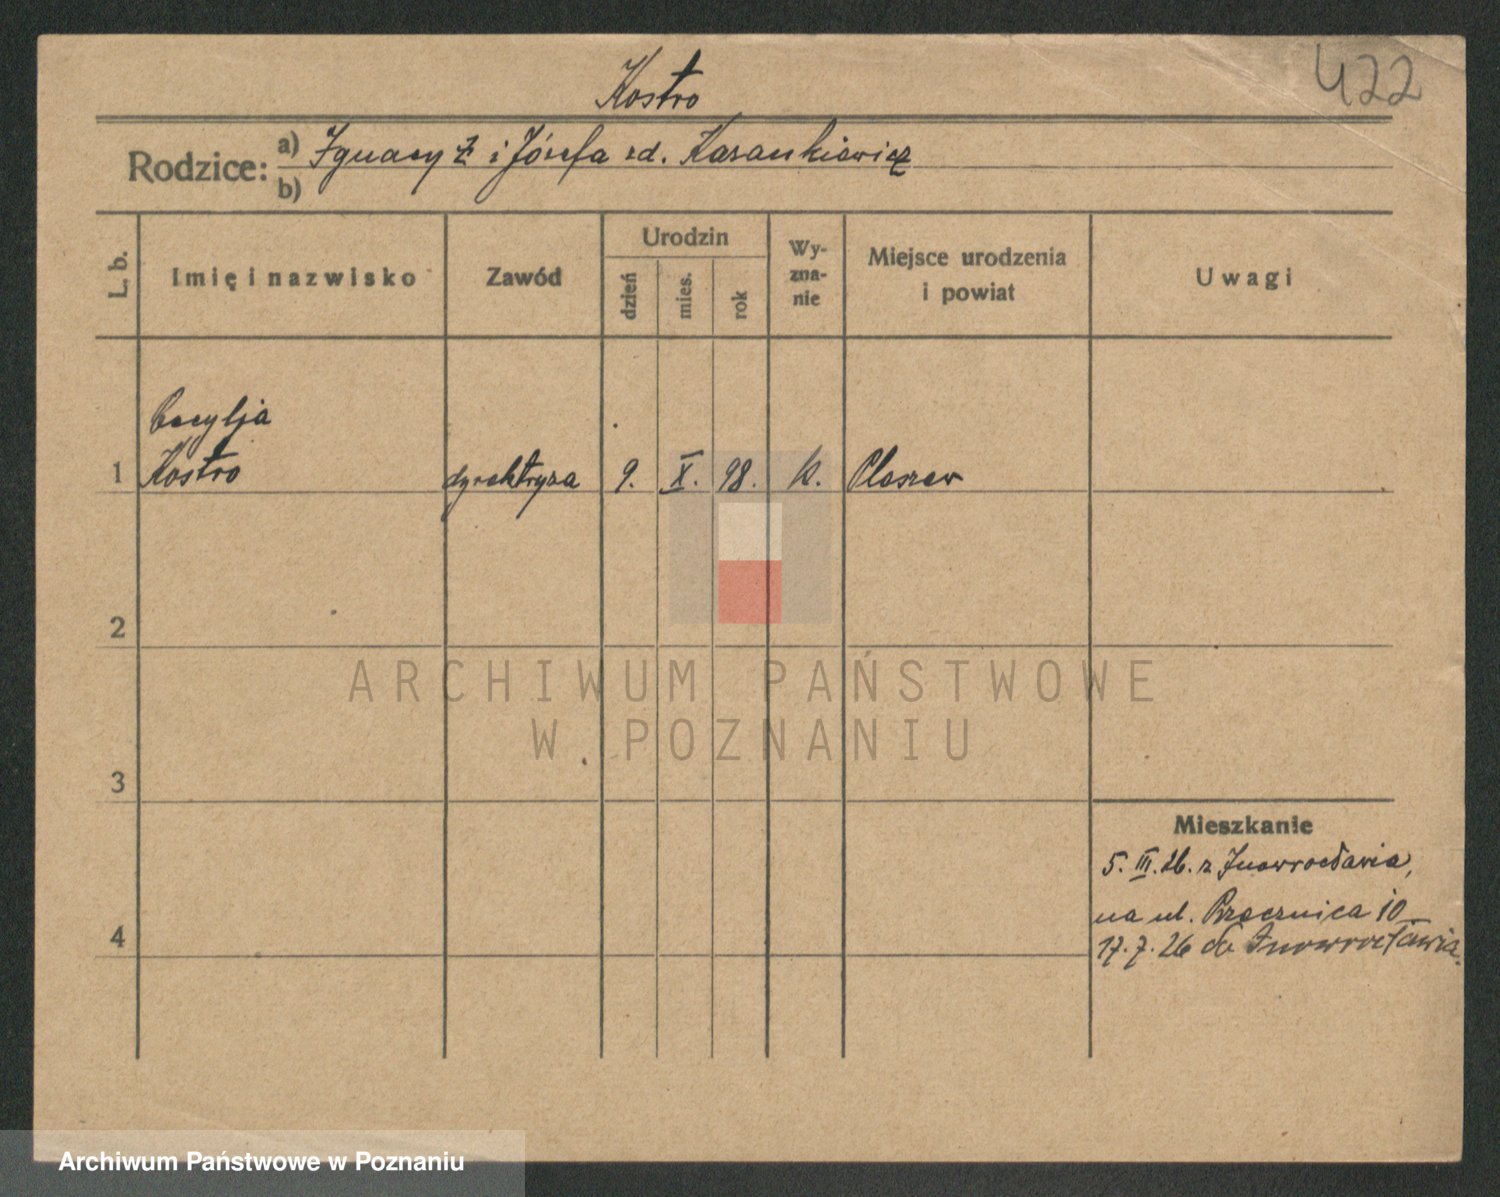 422
Kostro
Rodzice: a) Ignacy ż i Józefa zd. Kasankiewicz
b)
L. b. Imię i nazwisko Zawód Urodzin dzień mies. rok Wy-zna-nie Miejsce urodzenia i powiat Uwagi
Cecylja
1 Kostro dyrektryza 9. X. 98. k. Pleszew
2
ARCHIWUM PAŃSTWOWE
W POZNANIU
3
Mieszkanie
5. III. 26. z Inowrocławia,
na ul. Przecznica 10
4
17. 7. 26 do Inowrocławia.
Archiwum Państwowe w Poznaniu